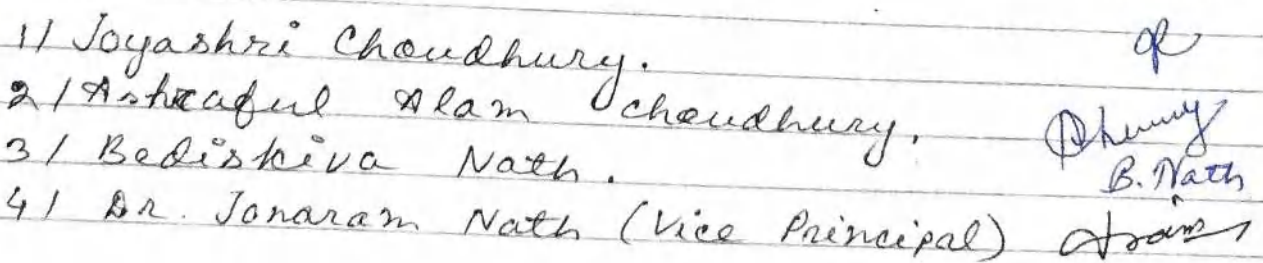 1/ Joyashri Choudhury.
2/ Ashraful Alam Choudhury.
3/ Bediskiva Nath. B. Nath
4/ Dr. Jonaram Nath (Vice Principal)